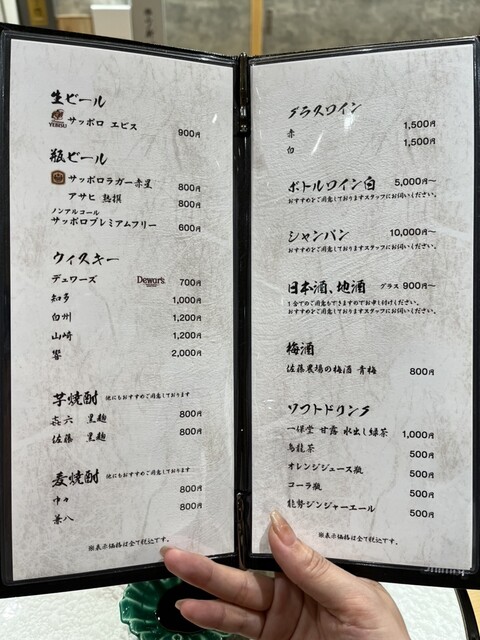 生ビール
YEBISU
サッポロ ヱビス 900円
瓶ビール
サッポロラガー赤星 800円
アサヒ 熟撰 800円
ノンアルコール
サッポロプレミアムフリー 600円
ウィスキー
デュワーズ Dewar's 700円
知多 1,000円
白州 1,200円
山崎 1,200円
響 2,000円
芋焼酎 他にもおすすめご用意しております
㐂六 黒麹 800円
佐藤 黒麹 800円
麦焼酎 他にもおすすめご用意しております
中々 800円
兼八 800円
※表示価格は全て税込です。
グラスワイン
赤 1,500円
白 1,500円
ボトルワイン白 5,000円～
おすすめをご用意しておりますスタッフにお伺いください。
シャンパン 10,000円～
おすすめをご用意しておりますスタッフにお伺いください。
日本酒、地酒 グラス 900円～
1合でのご用意もできますのでお申し付けください。
おすすめをご用意しておりますスタッフにお伺いください。
梅酒
佐藤農場の梅酒 青梅 800円
ソフトドリンク
一保堂 甘露 水出し緑茶 1,000円
烏龍茶 500円
オレンジジュース瓶 500円
コーラ瓶 500円
能勢ジンジャーエール 500円
※表示価格は全て税込です。